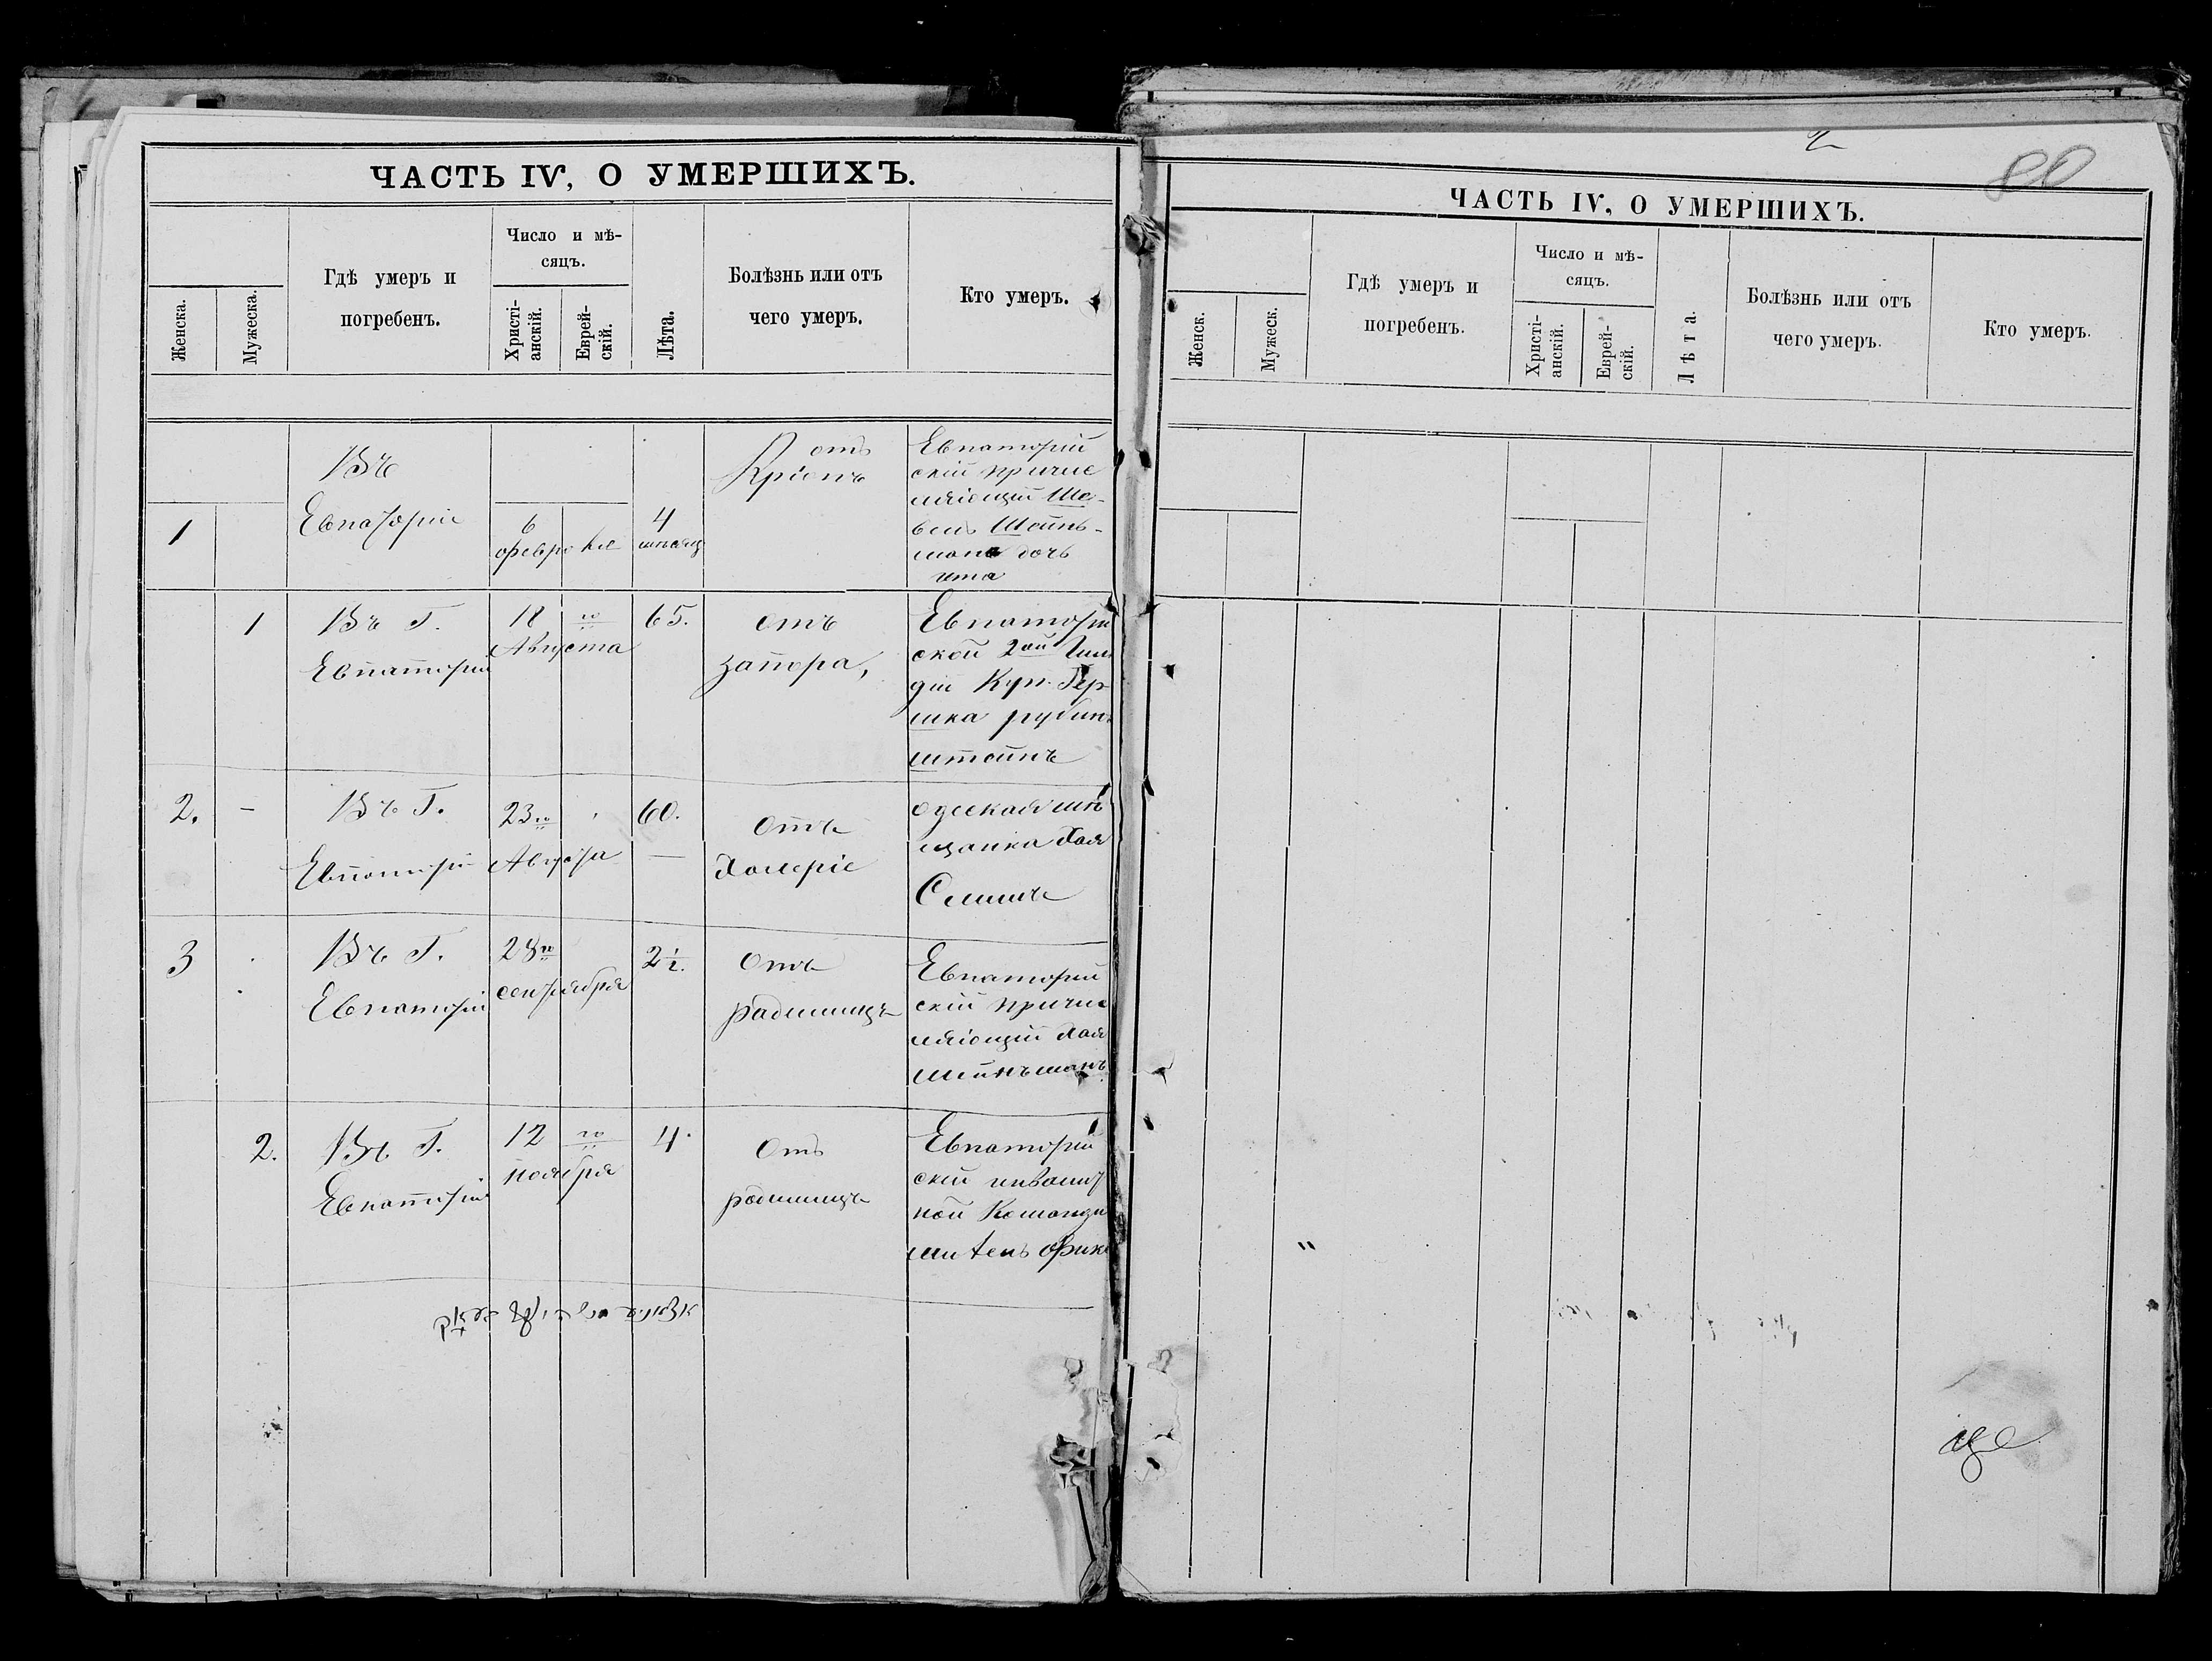 ЧАСТЬ IV, О УМЕРШИХЪ.
Женска.
Мужеска.
Гдѣ умеръ и
погребенъ.
Число и мѣ-
сяцъ.
Христі-
анскій.
Еврей-
скій.
Лѣта.
Болѣзнь или отъ
чего умеръ.
Кто умеръ.
1
Въ
Евпаторіи
6
февр
4
мѣсяц
отъ
Кріопъ
Евпаторій
скій причис
ляющій
дочь
1
Въ Г.
Евпаторіи
18 го
Августа
65.
отъ
запора,
Евпаторій
ской 2ой Гил
дій Куп. Гер
шка рубин
штейнъ
2. -
Въ Г.
Евпаторіи
23го
Августа
60.
отъ
Холеріе
одеская мѣ
щанка Хая
3
Въ Г.
Евпаторіи
28го
сентября
2½.
отъ
Евпаторій
скій причис
ляющій Хая
2.
Въ Г.
Евпаторіи
12 го
ноября
4.
отъ
Евпаторій
скій инвалид
ной Команди
ЧАСТЬ IV, О УМЕРШИХЪ.
80
Женск.
Мужеск.
Гдѣ умеръ и
погребенъ.
Число и мѣ-
сяцъ.
Христі-
анскій.
Еврей-
скій.
Лѣта.
Болѣзнь или отъ
чего умеръ.
Кто умеръ.